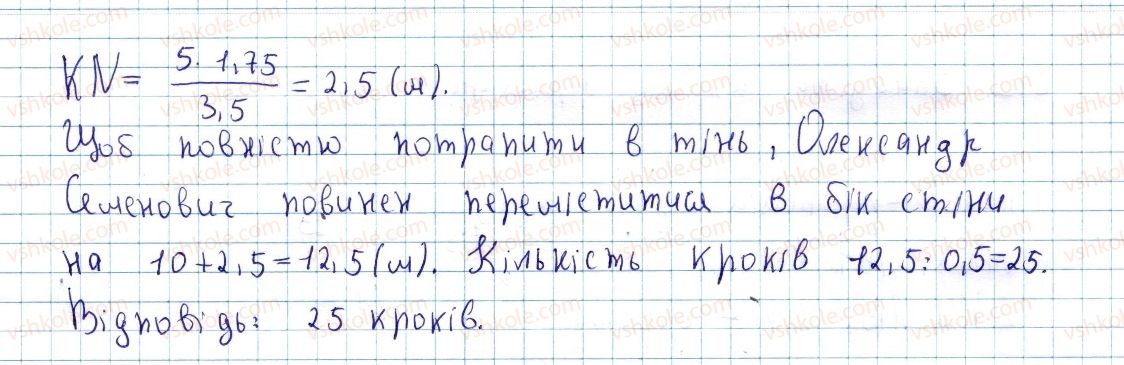 KN = \frac{5 \cdot 1,75}{3,5} = 2,5 (м).
Щоб повністю потрапити в тінь, Олександр
Семенович повинен переміститися в бік стіни
на 10+2,5=12,5(м). Кількість кроків 12,5:0,5=25.
Відповідь: 25 кроків.